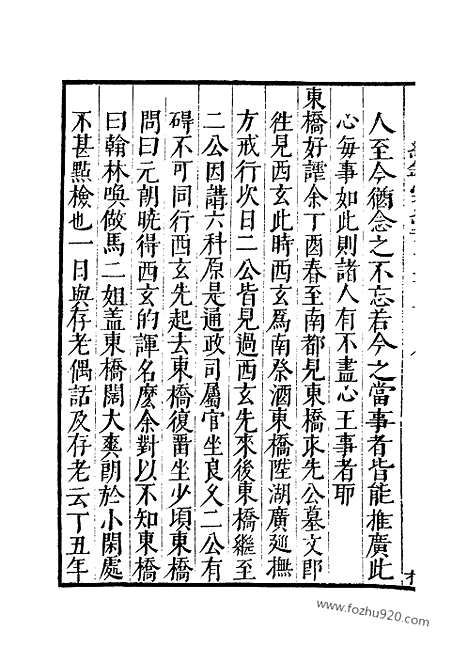 人至今猶念之不忘若今之當事者皆能推廣此
心每事如此則諸人有不盡心王事者耶
東橋好謔余丁酉春至南都見東橋求先公墓文即
徃見西玄此時西玄爲南祭酒東橋陞湖廣廵撫
方戒行次日二公皆見過西玄先來後東橋繼至
二公因講六科原是通政司屬官坐良久二公有
碍不可同行西玄先起去東橋復畱坐少頃東橋
問曰元朗曉得西玄的諢名麼余對以不知東橋
曰翰林喚做馬二姐蓋東橋闊大爽朗於小閑處
不甚點檢也一日與存老偶話及存老云丁丑年
www.fozhu920.com